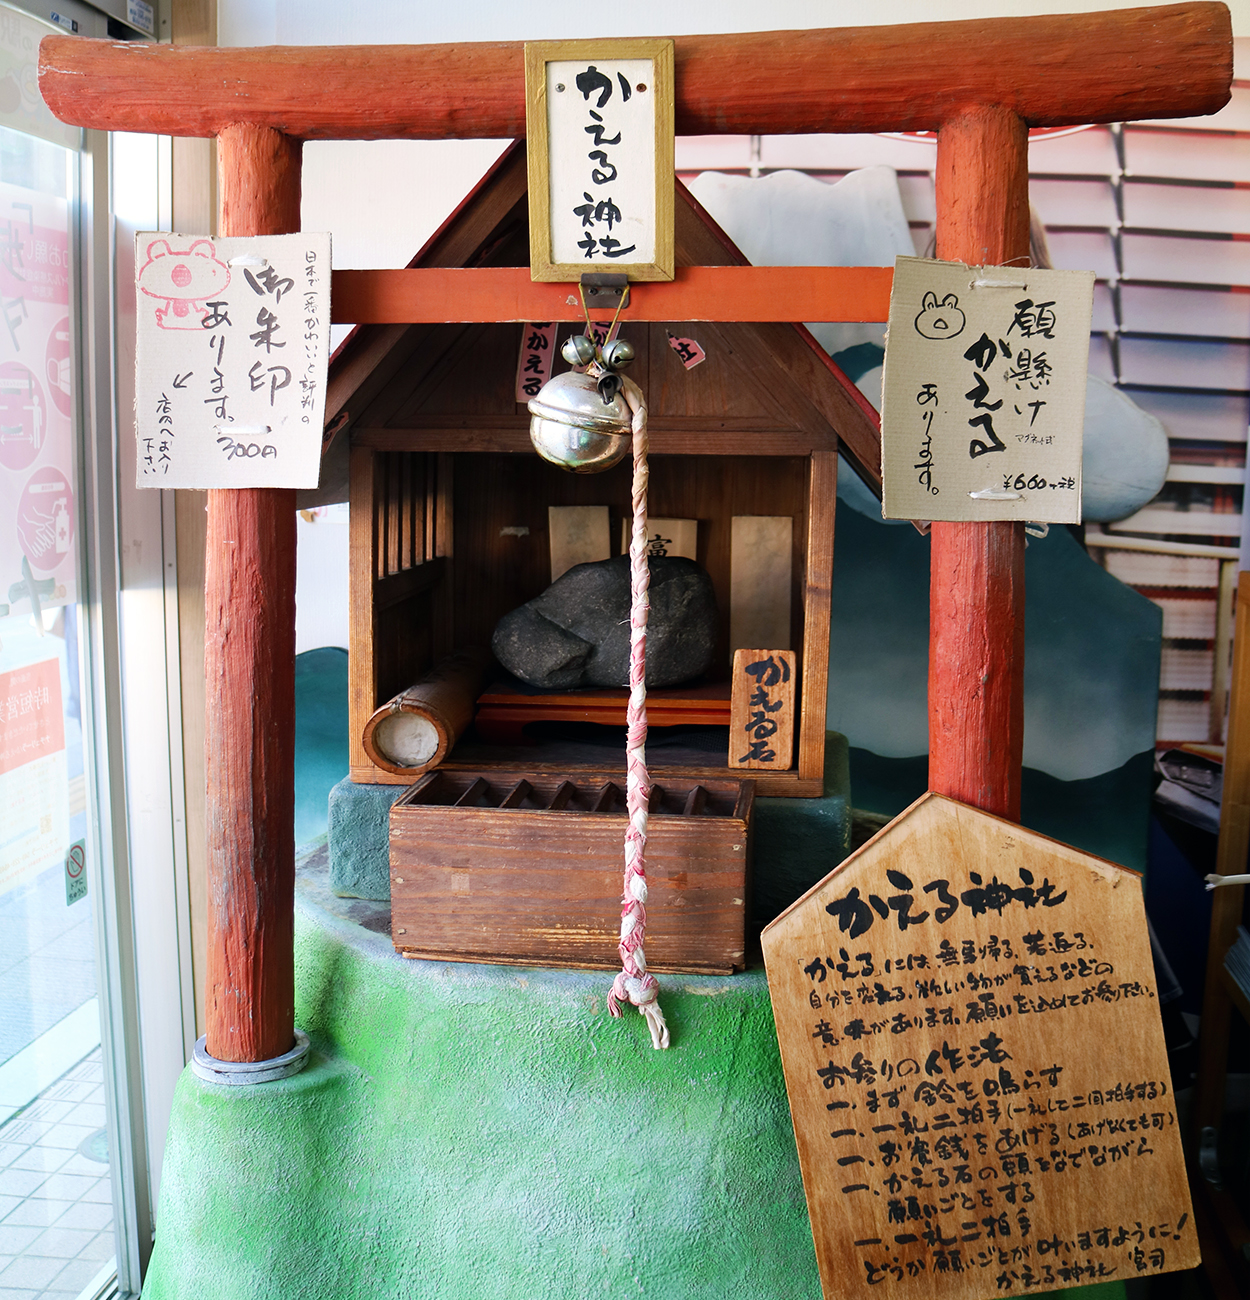 かえる神社
日本で一番かわいいと評判の
御朱印
あります。
300円
店内へお入り
下さい
願懸け
かえる
マグネット式
あります。
¥660+税
かえる
富
かえる石
かえる神社
「かえる」には、無事帰る、若返る、
自分を変える、欲しい物が買えるなどの
意味があります。願いを込めてお参り下さい。
お参りの作法
一、まず鈴を鳴らす
一、一礼二拍手(一礼して二回拍手する)
一、お賽銭をあげる(あげなくても可)
一、かえる石の頭をなでながら
願いごとをする
一、一礼二拍手
どうか願いごとが叶いますように!
かえる神社 宮司